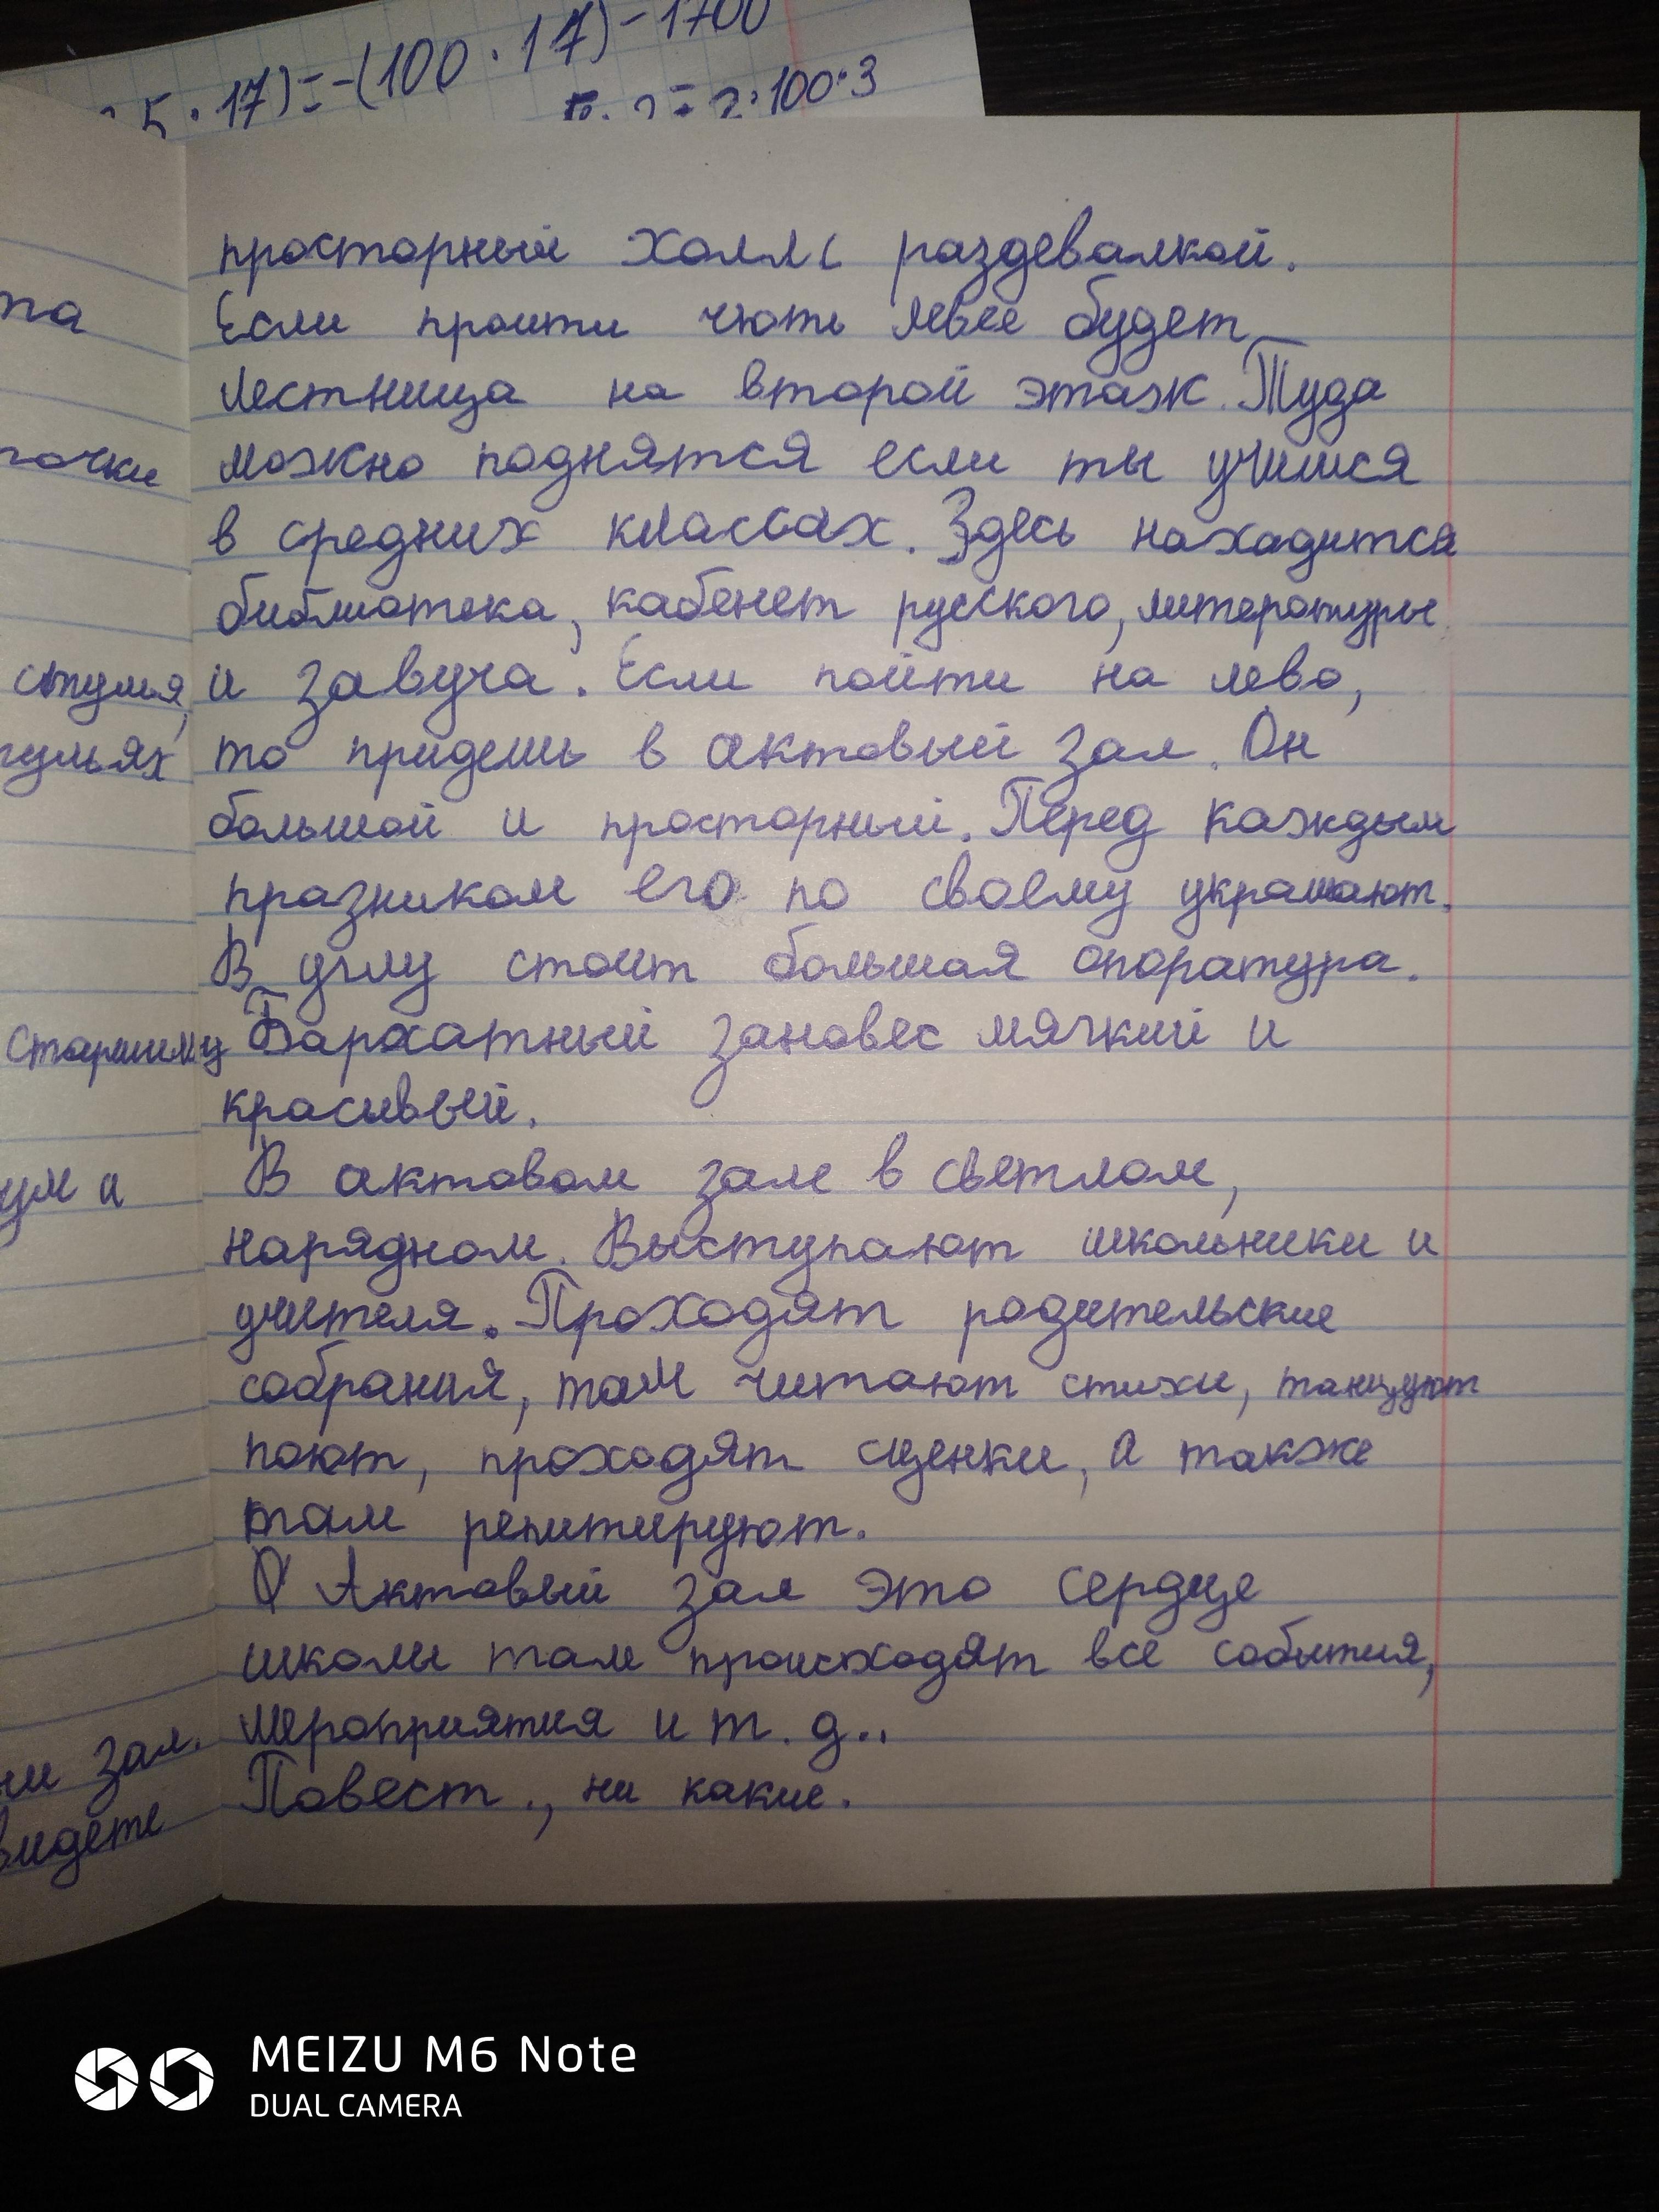 5 · 17) = -(100 · 17) - 1700
= 2 · 100 · 3
та
точки
стулья,
тульях
старшим
ум и
ни зал.
видете
просторный холл с раздевалкой.
Если проити чють левее будет
лестница на второй этаж. Туда
можно поднятся если ты учишся
в средних классах. Здесь находится
библиотека, кабенет русского, литературы
и завуча. Если пойти на лево,
то придешь в актовый зал. Он
большой и просторный. Перед каждым
празником его по своему украшают.
В углу стоит большая опоратура.
Бархатный зановес мягкий и
красивый.
В актовом зале в светлом,
нарядном. Выступают школьники и
учителя. Проходят родительские
собрания, там читают стихи, танцуют
поют, проходят сценки, а также
там репитируют.
Актовый зал это сердце
школы там происходят все события,
мероприятия и т. д..
Повест., ни какие.
MEIZU M6 Note
DUAL CAMERA